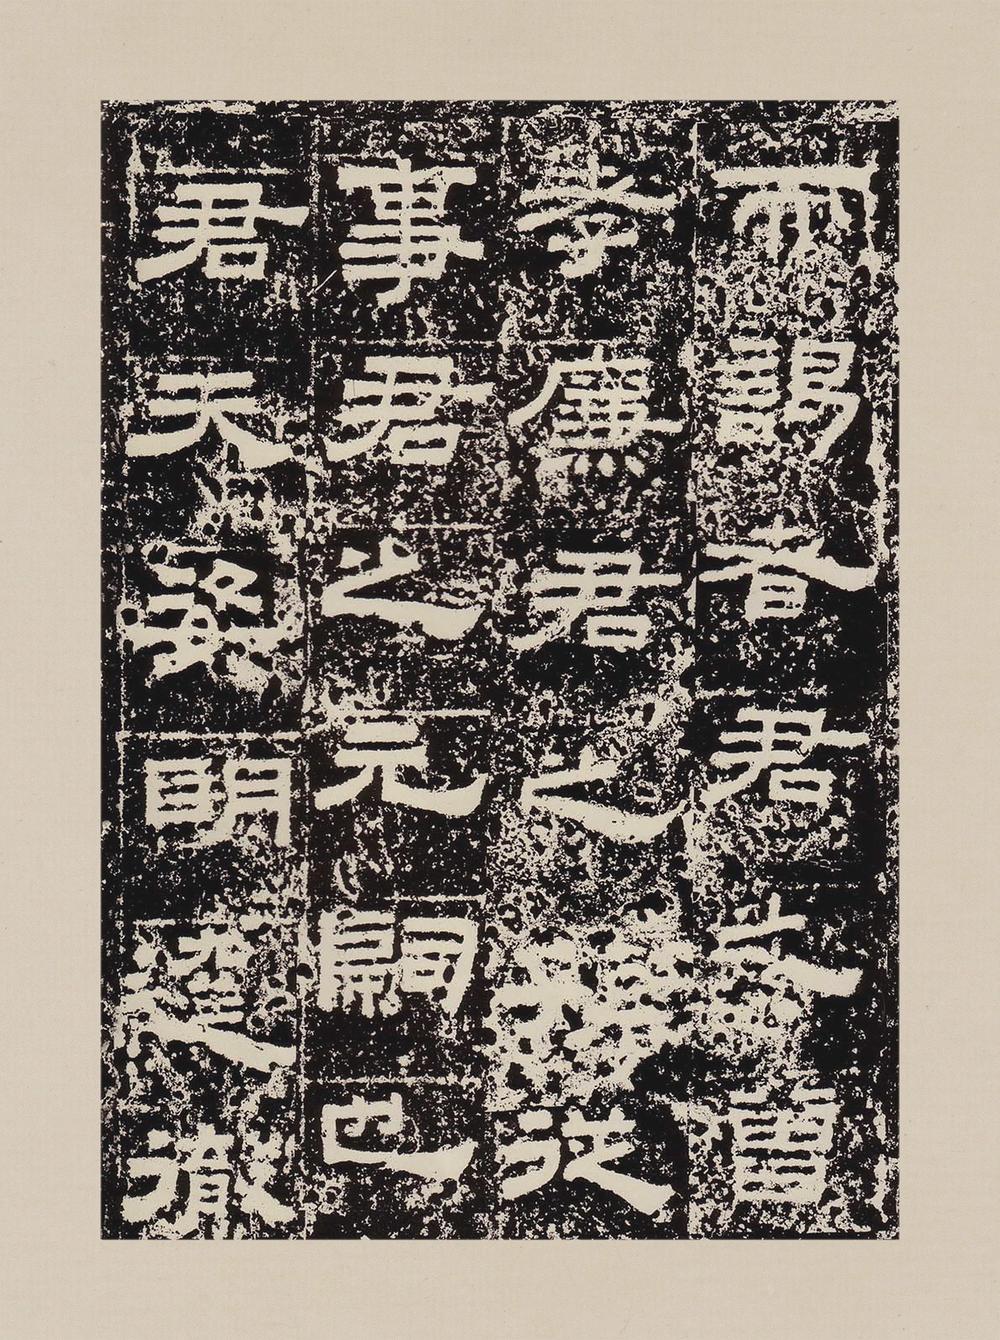 而謁者君之曾
孝廉君之孫從
事君之元嗣也
君天姿明徹